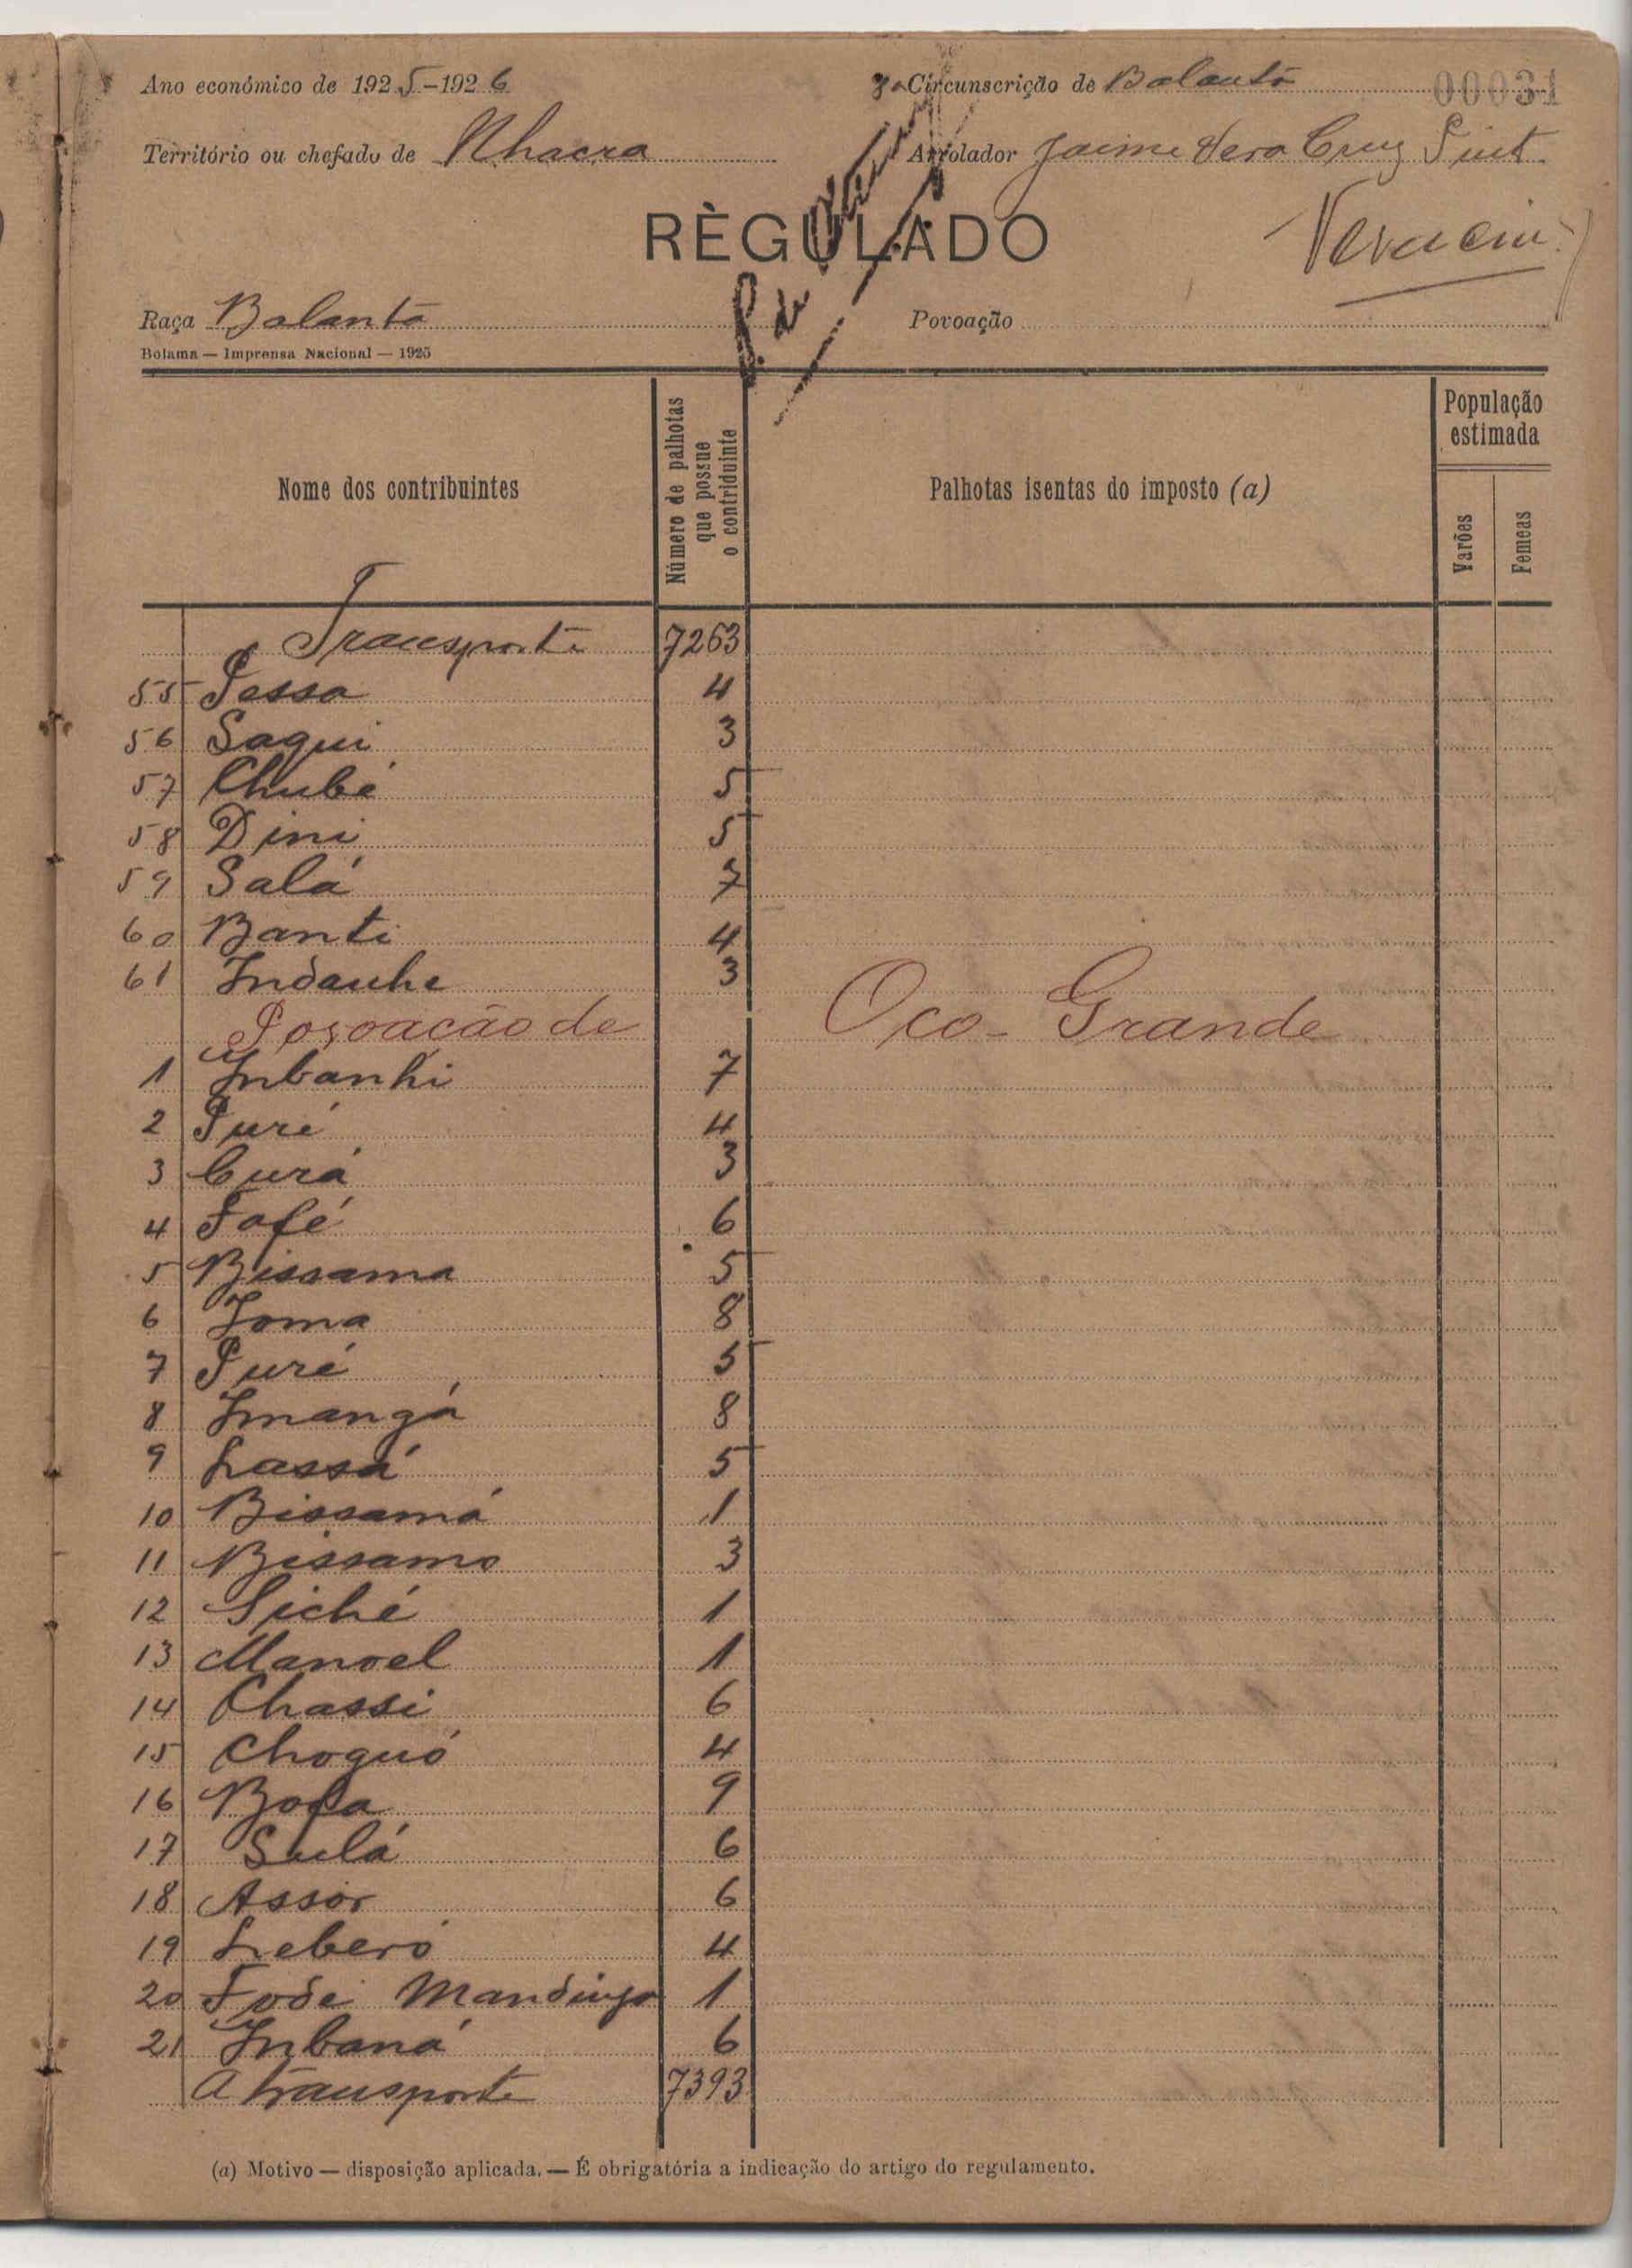 Ano económico de 1925-1926
3ª Circunscrição de Balanta
00031
Território ou chefado de Nhacra
Arrolador Jaime Vera Cruz Pint
RÈGULADO
Raça Balanta
Povoação
Bolama — Imprensa Nacional — 1925
Nome dos contribuintes
Número de palhotas
que possue
o contriduinte
Palhotas isentas do imposto (a)
População
estimada
Varões
Femeas
Transporte 7263
55 Pessa 4
56 Sagui 3
57 Chubé 5
58 Dini 5
59 Salá 7
60 Banti 4
61 Indanhe 3
Povoação de Oco-Grande
1 Inbanhi 7
2 Puré 4
3 Curá 3
4 Fafé 6
5 Bissama 5
6 Joma 8
7 Puré 5
8 Imangá 8
9 Lassá 5
10 Bissamá 1
11 Bissamo 3
12 Siché 1
13 Manoel 1
14 Chassi 6
15 Choguó 4
16 Bofa 9
17 Sulá 6
18 Assór 6
19 Leberó 4
20 Fodé Mandinga 1
21 Inbaná 6
A transporte 7393
(a) Motivo — disposição aplicada. — É obrigatória a indicação do artigo do regulamento.